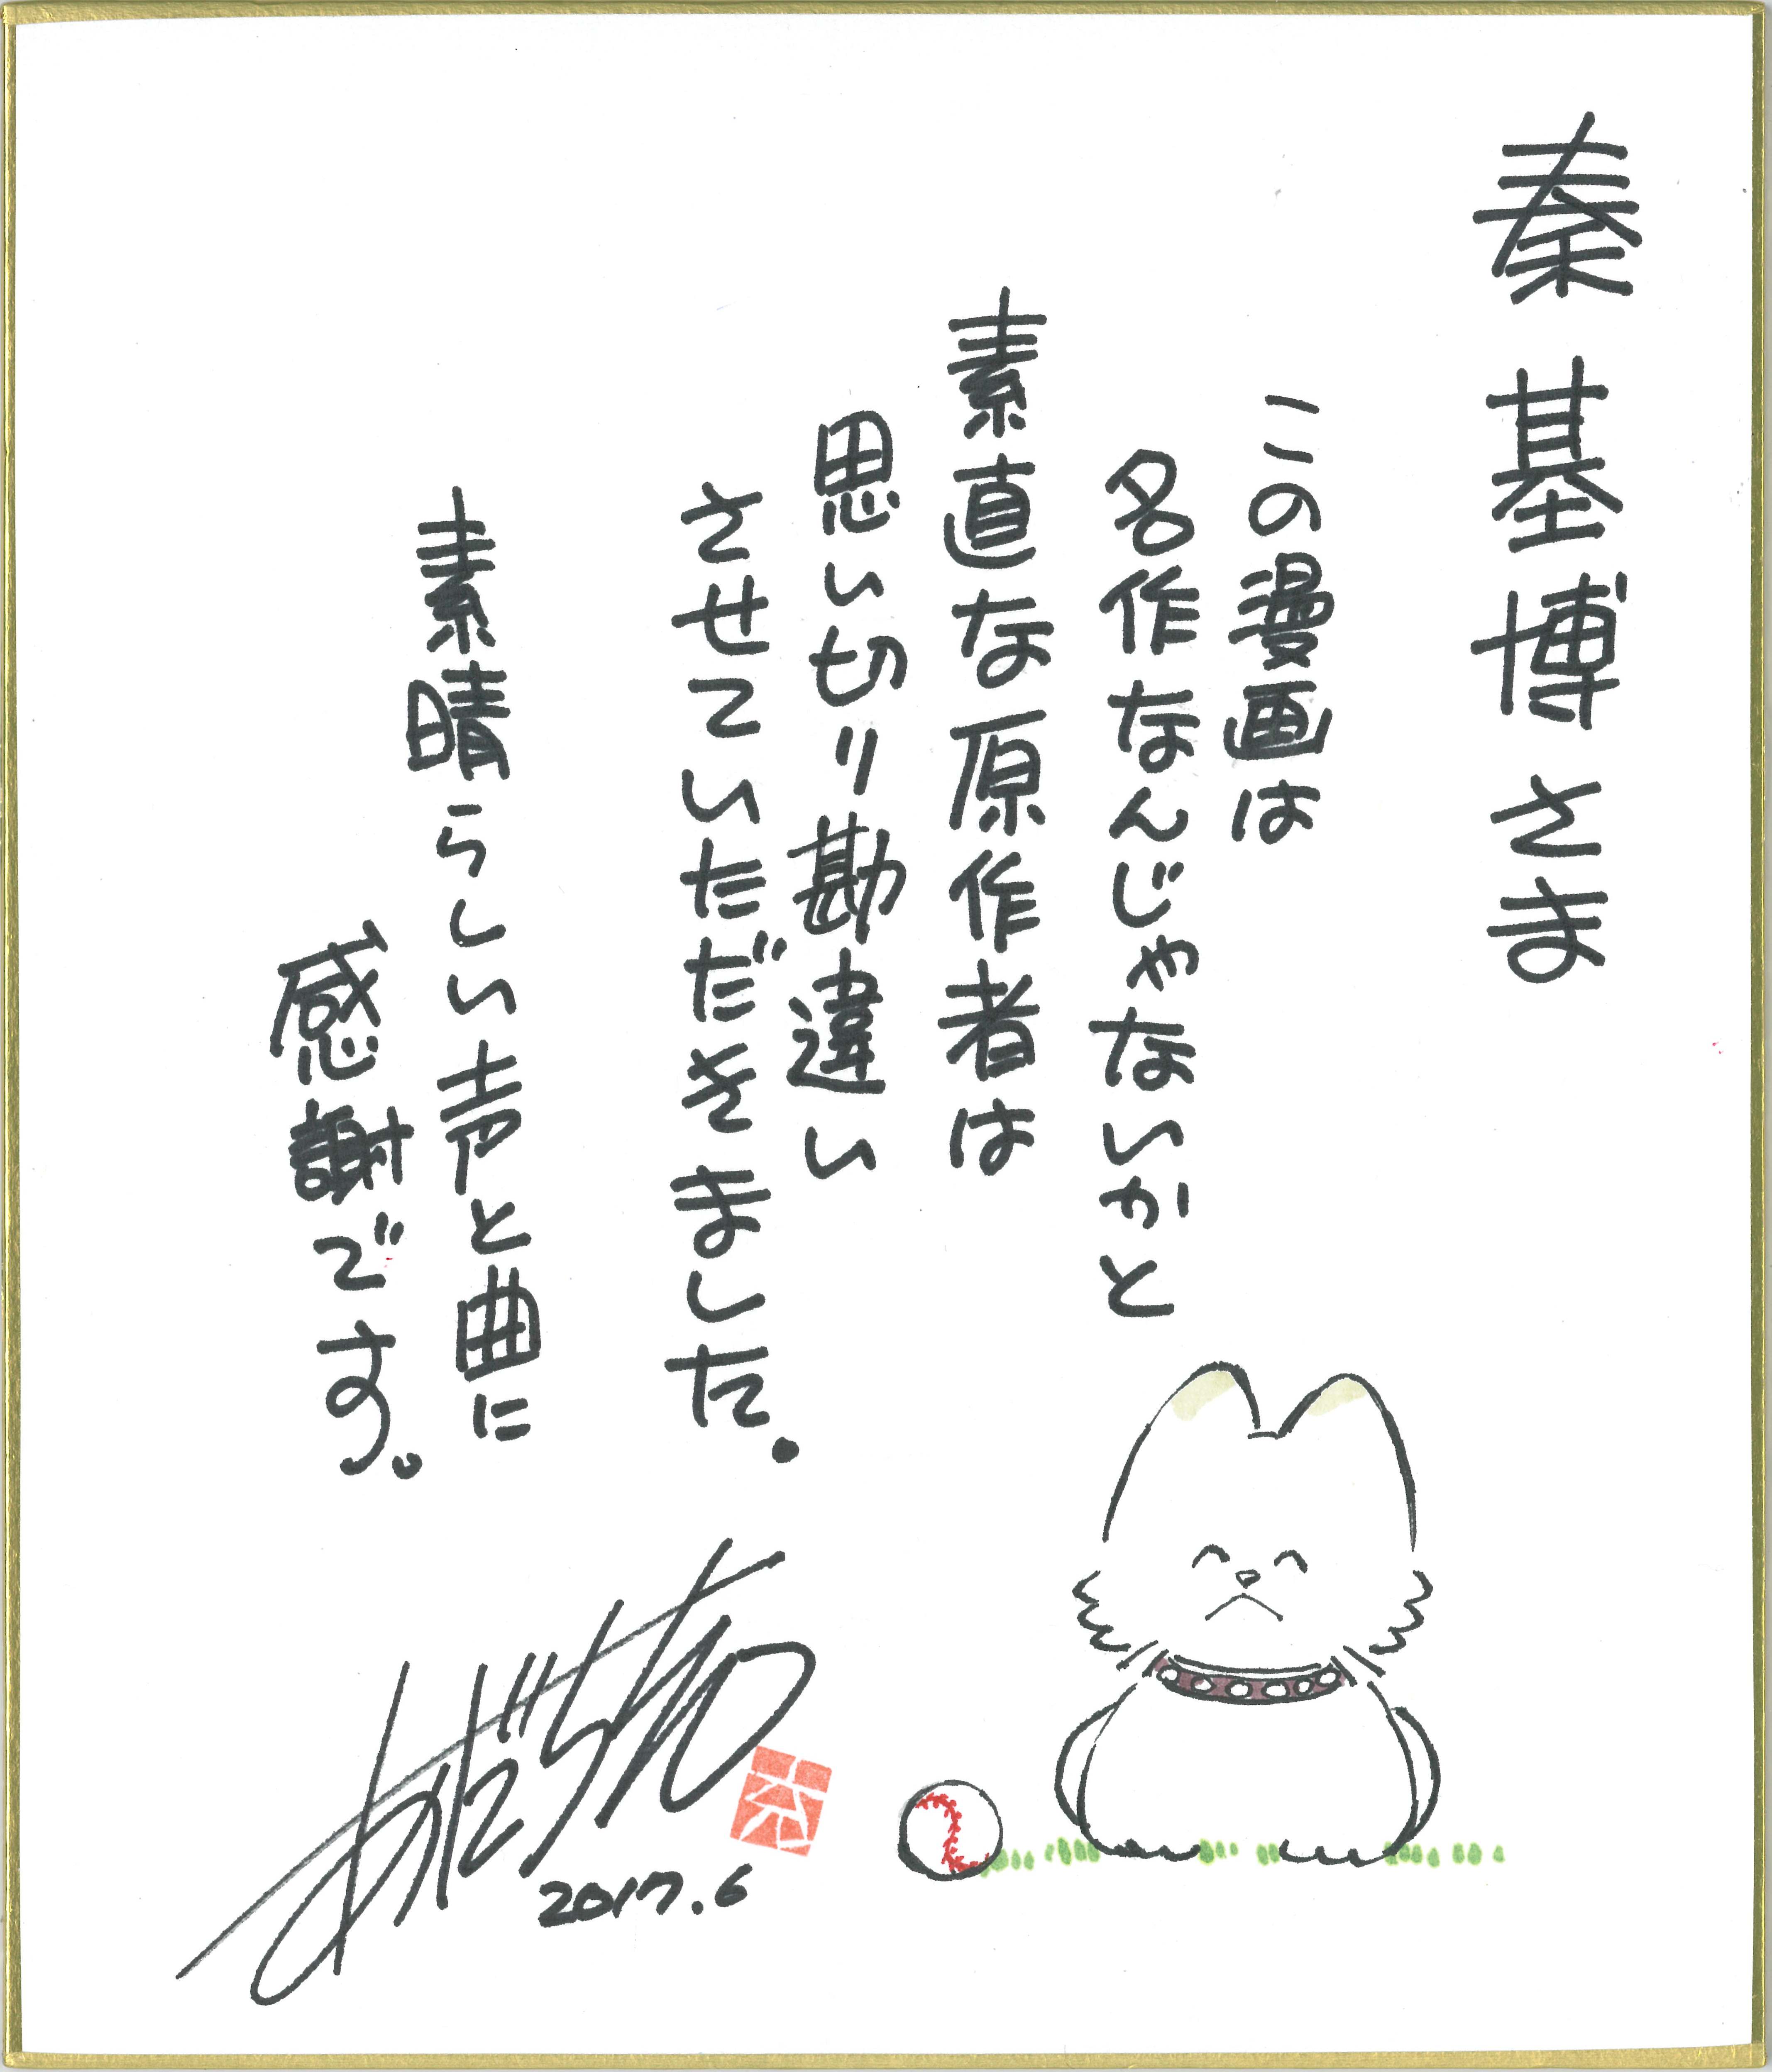 秦 基博 さま
この漫画は
名作なんじゃないかと
素直な原作者は
思い切り勘違い
させていただきました。
素晴らしい声と曲に
感謝です。
あだち充
2017.6